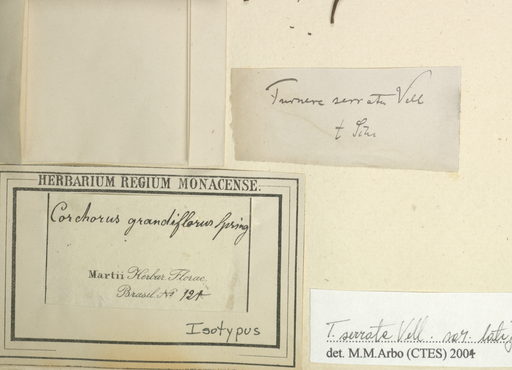 Turnera serrata Vell
HERBARIUM REGIUM MONACENSE.
Corchorus grandiflorus Spring
Martii Herbar. Florae
Brasil. No 121
Isotypus
T. serrata Vell. var.
det. M.M.Arbo (CTES) 2004